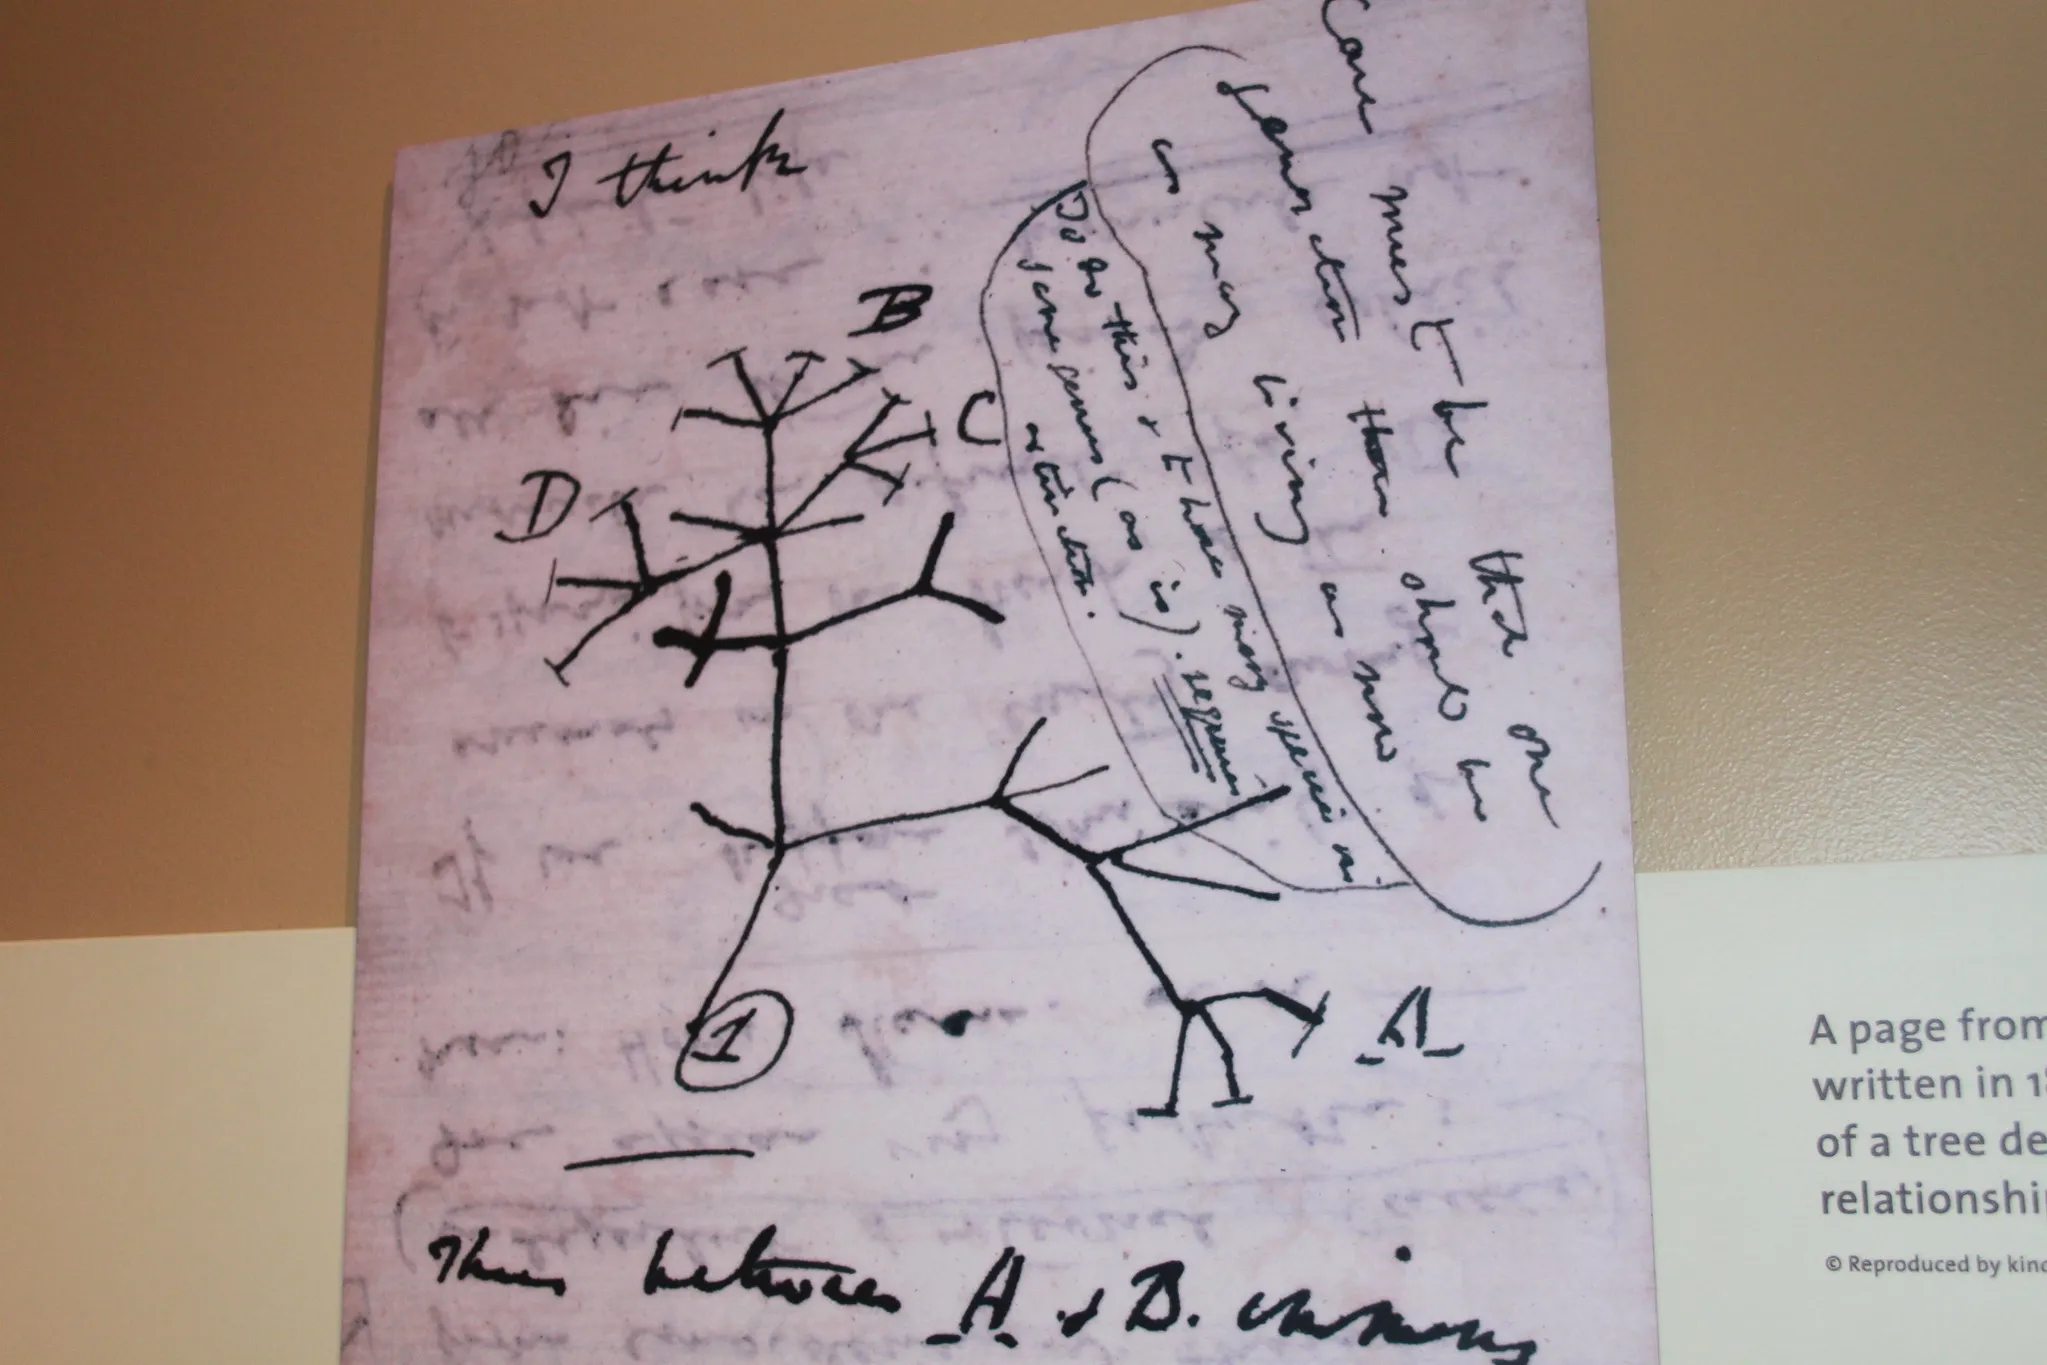 I think
Case must be that one
generation then should be
as many living as now
To do this & to have many species in
same genus (as is). requires
extinction.
B
C
D
A
1
Thus between A & B. immense
A page from
written in 18
of a tree de
relationshi
© Reproduced by kind